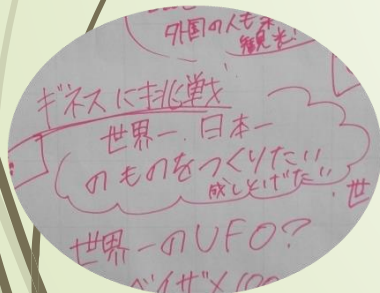 外国の人も来
観光!
ギネスに挑戦
世界一、日本一
のものをつくりたい
成しとげたい
世
世界一のUFO?